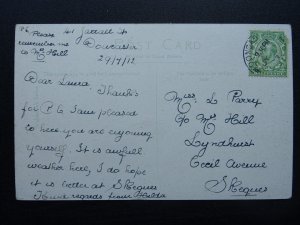 P.S. Please
remember me
to Mr Hill
41 Jarratt St
Doncaster
29/7/12
POST CARD
Dear Laura, Thanks
for P.C. I am pleased
to hear you are enjoying
yourself. It is awfull
weather here, I do hope
it is better at St Regues
Kind regards from Hilda
Miss L Parry
c/o Mrs Hill
Lyndhurst
Cecil Avenue
St Regues